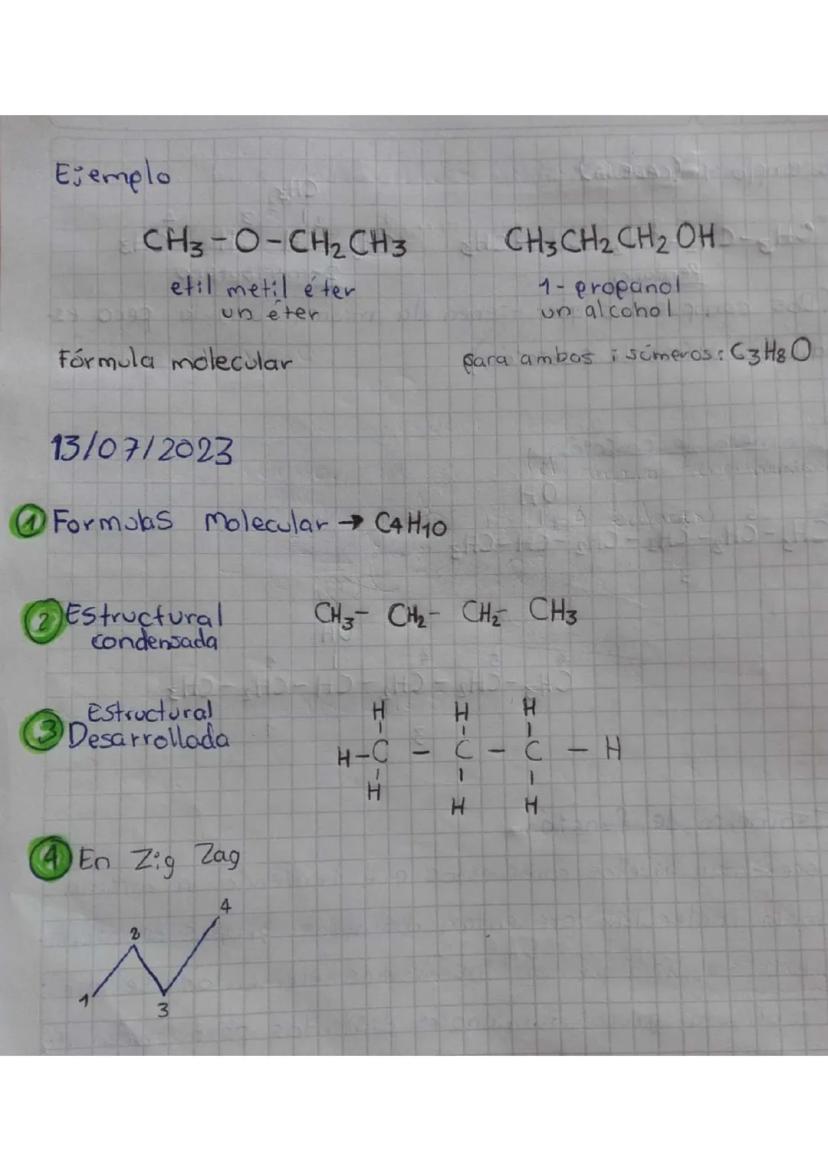 Ejemplo
CH3-O-CH2CH3 CH3CH2CH2OH
etil metil éter 1-propanol
un éter un alcohol
Fórmula molecular para ambos isómeros: C3H8O
13/07/2023
1 Formulas Molecular → C4H10
2 Estructural CH3- CH2- CH2- CH3
condensada
Estructural H H H
3 Desarrollada H-C - C - C - H
H H H
4 En Zig Zag
1 2 3 4